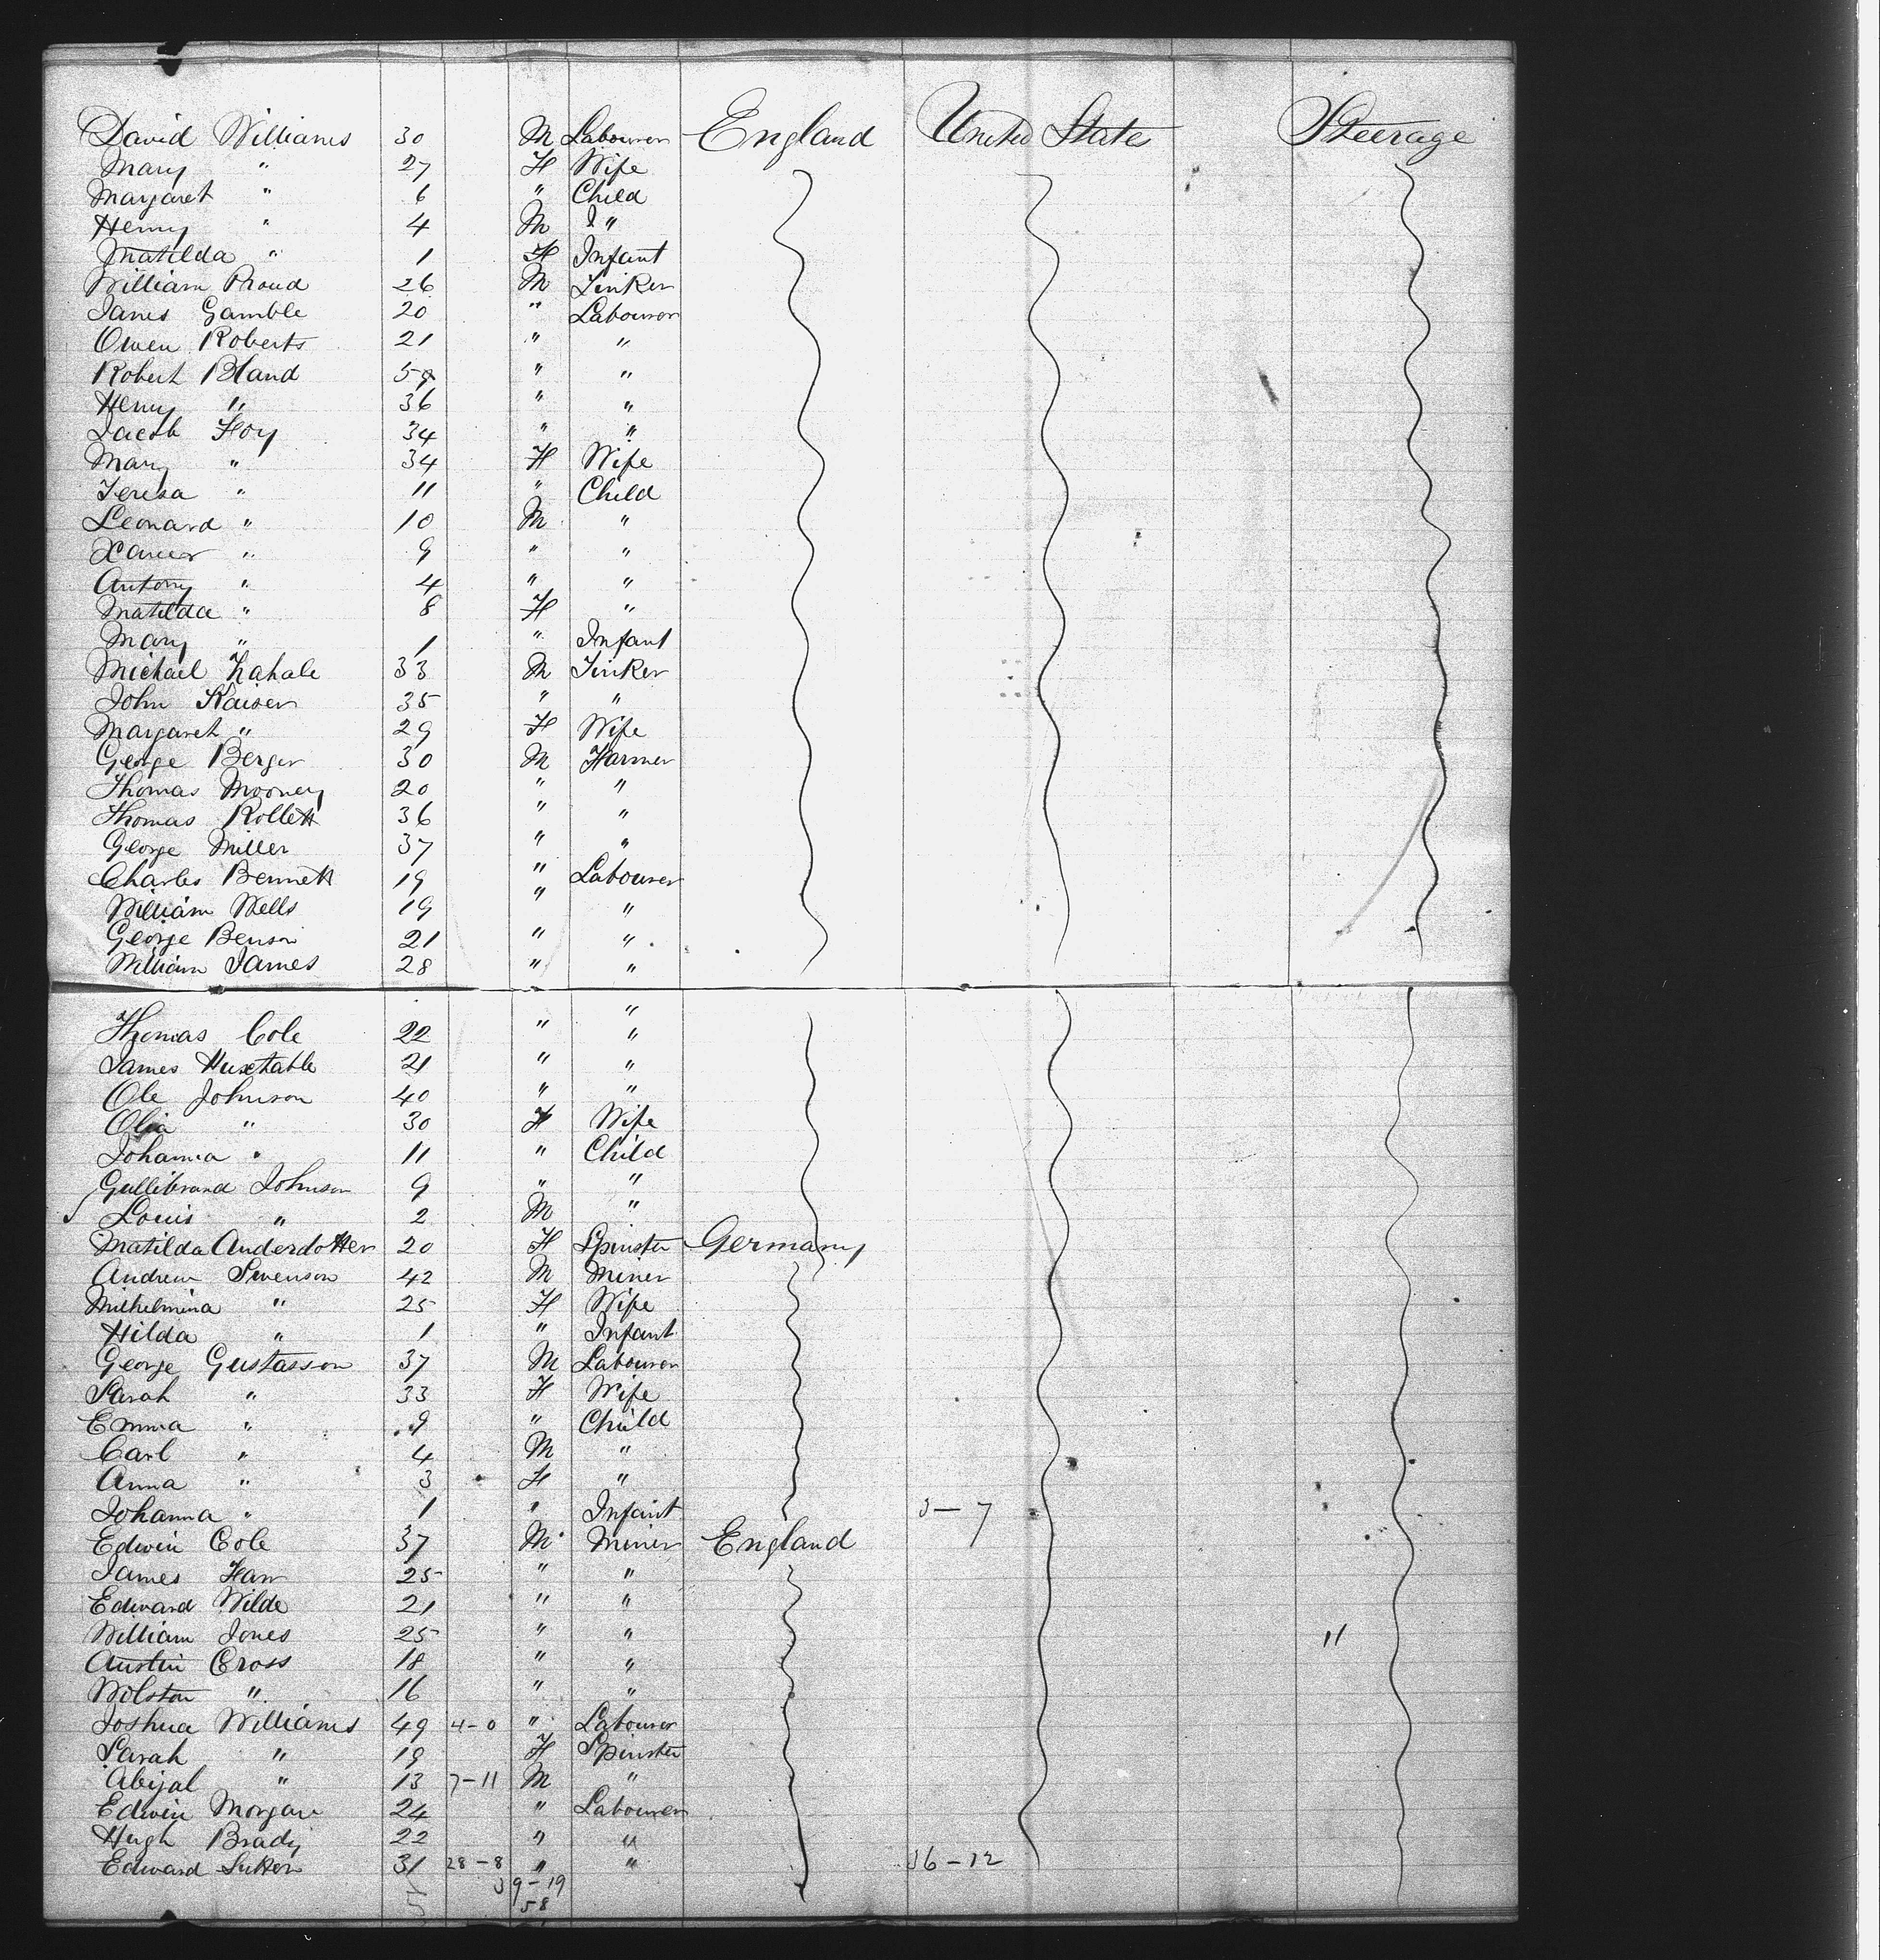 David Williams 30 M Labourer England United State Steerage
Mary " 27 F Wife
Margaret " 6 " Child
Henry " 4 M "
Matilda " 1 F Infant
William Proud 26 M Tinker
James Gamble 20 " Labourer
Owen Roberts 21 " "
Robert Bland 59 " "
Henry " 36 " "
Jacob Foy 34 " "
Mary " 34 F Wife
Teresa " 11 " Child
Leonard " 10 M "
Xavier " 9 " "
Antony " 4 " "
Matilda " 8 F "
Mary " 1 " Infant
Michael 33 M Tinker
John Kaiser 35 " "
Margaret " 29 F Wife
George Berger 30 M Farmer
Thomas Mooney 20 " "
Thomas Rollett 36 " "
George Miller 37 " "
Charles Bennett 19 " Labourer
William Wells 19 " "
George Benson 21 " "
William James 28 " "
Thomas Cole 22 " "
James Huxtable 21 " "
Ole Johnson 40 " "
Olia " 30 F Wife
Johanna " 11 " Child
Gullibrand Johnson 9 " "
Louis " 2 M "
Matilda Anderdotter 20 F Spinster Germany
Andrew Swenson 42 M Miner
Wilhelmina " 25 F Wife
Hilda " 1 " Infant
George Gustasson 37 M Labourer
Sarah " 33 F Wife
Emma " 9 " Child
Carl " 4 M "
Anna " 3 F "
Johanna " 1 " Infant 3-7
Edwin Cole 37 M Miner England
James Ham 25 " "
Edward Wilde 21 " "
William Jones 25 " " 11
Austin Cross 18 " "
Wolston " 16 " "
Joshua Williams 49 4-0 " Labourer
Sarah " 19 F Spinster
Abijal " 13 7-11 M "
Edwin Morgan 24 " Labourer
Hugh Brady 22 " "
Edward Sutton 31 28-8 " " 36-12
39-19
58